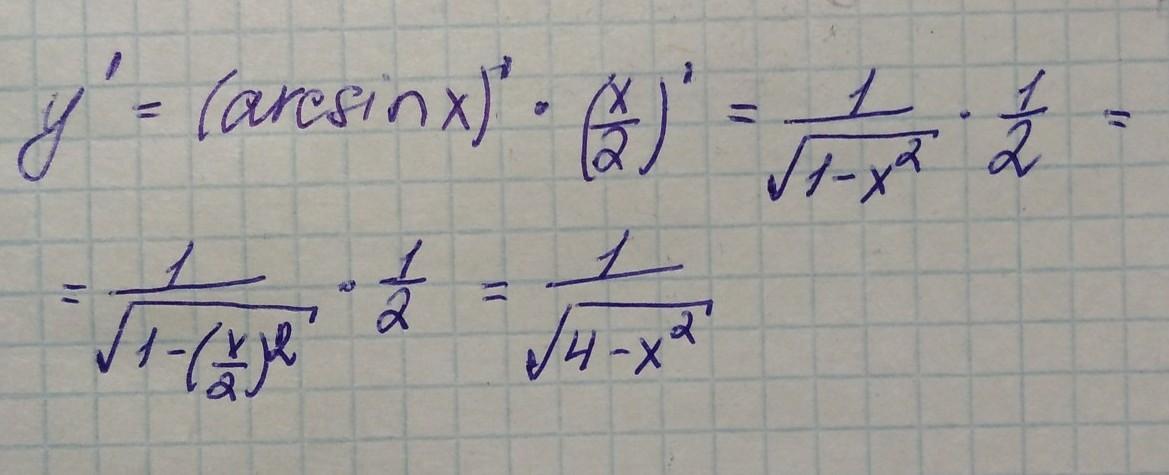 y' = (arcsin x)' · (x/2)' = 1/√(1-x²) · 1/2 =
= 1/√(1-(x/2)²) · 1/2 = 1/√(4-x²)